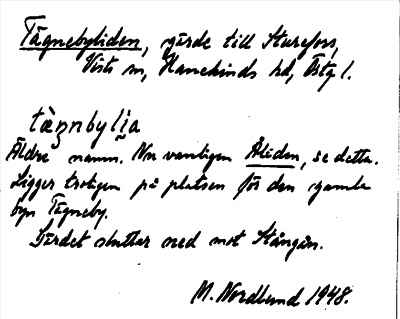 Tägnebyliden, gärde till Sturefors,
Vists sn, Hanekinds hd, Östg l.
tàŋnbylia
Äldre namn. Nu vanligen Åliden, se detta.
Ligger troligen på platsen för den gamla
byn Tägneby.
Gärdet sluttar ned mot Stångån.
M. Nordlund 1948.